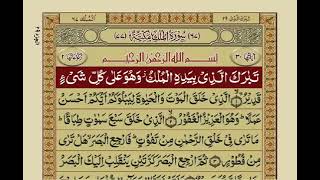 تبٰرك الذی ٢٩ الملك ٦٧
اٰیاتها ٣٠ (٦٧) سُوْرَةُ الْمُلْكِ مَكِّیَّةٌ (٧٧) ٢
بِسْمِ اللهِ الرَّحْمٰنِ الرَّحِیْمِ
تَبٰرَكَ الَّذِیْ بِیَدِهِ الْمُلْكُ وَهُوَ عَلٰی كُلِّ شَیْءٍ
قَدِیْرُۙ ۝١ الَّذِیْ خَلَقَ الْمَوْتَ وَالْحَیٰوةَ لِیَبْلُوَكُمْ اَیُّكُمْ اَحْسَنُ
عَمَلًاؕ وَهُوَ الْعَزِیْزُ الْغَفُوْرُۙ ۝٢ الَّذِیْ خَلَقَ سَبْعَ سَمٰوٰتٍ طِبَاقًاؕ
مَا تَرٰی فِیْ خَلْقِ الرَّحْمٰنِ مِنْ تَفٰوُتٍؕ فَارْجِعِ الْبَصَرَۙ هَلْ تَرٰی
مِنْ فُطُوْرٍ ۝٣ ثُمَّ ارْجِعِ الْبَصَرَ كَرَّتَیْنِ یَنْقَلِبْ اِلَیْكَ الْبَصَرُ